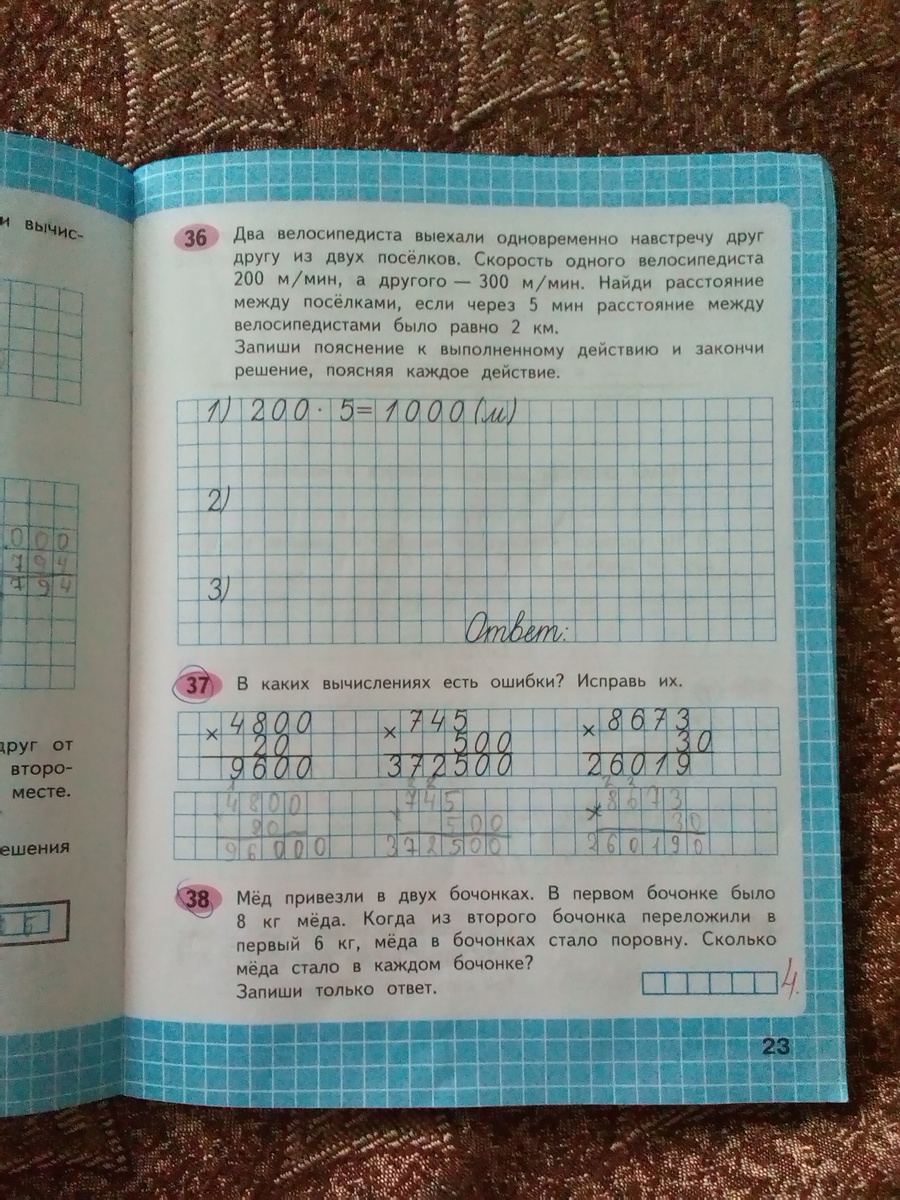 и вычис-
000
794
794
друг от
второ-
месте.
ешения
36 Два велосипедиста выехали одновременно навстречу друг
другу из двух посёлков. Скорость одного велосипедиста
200 м/мин, а другого — 300 м/мин. Найди расстояние
между посёлками, если через 5 мин расстояние между
велосипедистами было равно 2 км.
Запиши пояснение к выполненному действию и закончи
решение, поясняя каждое действие.
1) 200 · 5 = 1000 (м)
2)
3)
Ответ:
37 В каких вычислениях есть ошибки? Исправь их.
× 4800 × 745 × 8673
20 500 30
9600 372500 26019
4800 × 745 × 8673
20 500 30
96000 372500 260190
38 Мёд привезли в двух бочонках. В первом бочонке было
8 кг мёда. Когда из второго бочонка переложили в
первый 6 кг, мёда в бочонках стало поровну. Сколько
мёда стало в каждом бочонке?
Запиши только ответ.
4.
23